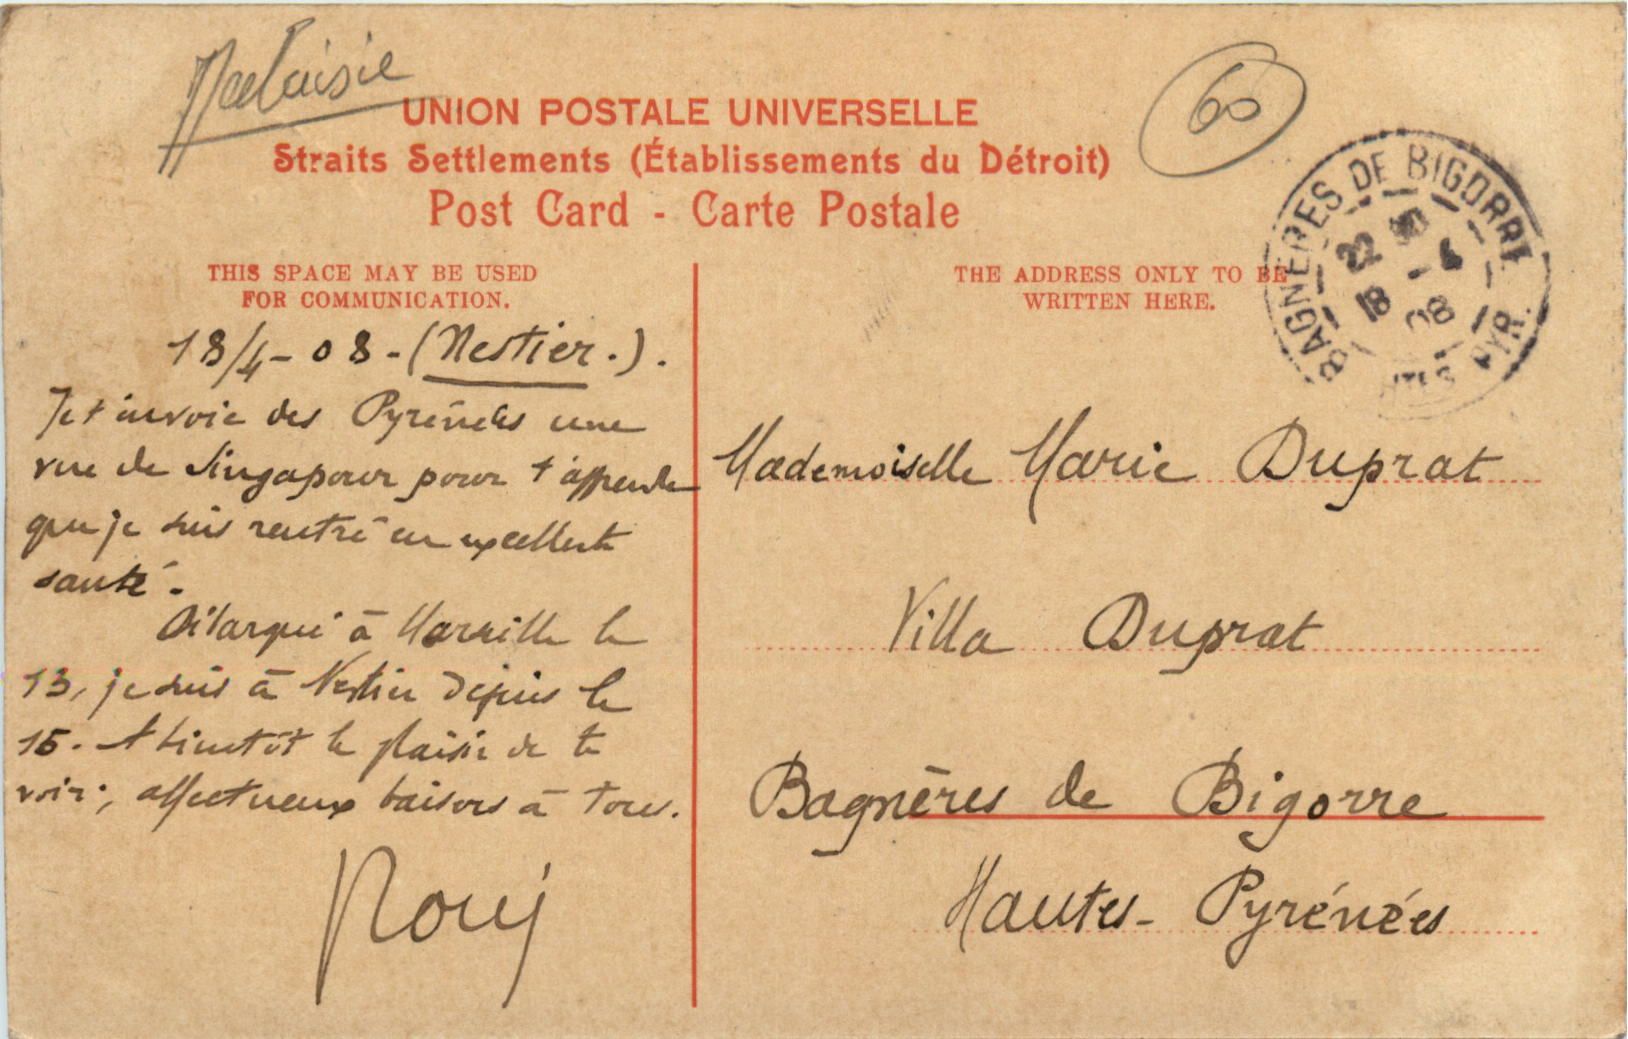 Malaisie
60
UNION POSTALE UNIVERSELLE
Straits Settlements (Établissements du Détroit)
Post Card - Carte Postale
THIS SPACE MAY BE USED
FOR COMMUNICATION.
18/4-08-(Nestier.).
Je t'envoie des Pyrénées une
vue de Singapour pour t'apprendre
que je suis rentré en excellente
santé.
à Marseille le
13, je suis à Nestier depuis le
15. A bientôt le plaisir de te
voir; affectueux baisers à tous.
THE ADDRESS ONLY TO BE
WRITTEN HERE.
BAGNÈRES DE BIGORRE
22
18 -4
08
HTES PYR.
Mademoiselle Marie Duprat
Villa Duprat
Bagnères de Bigorre
Hautes-Pyrénées